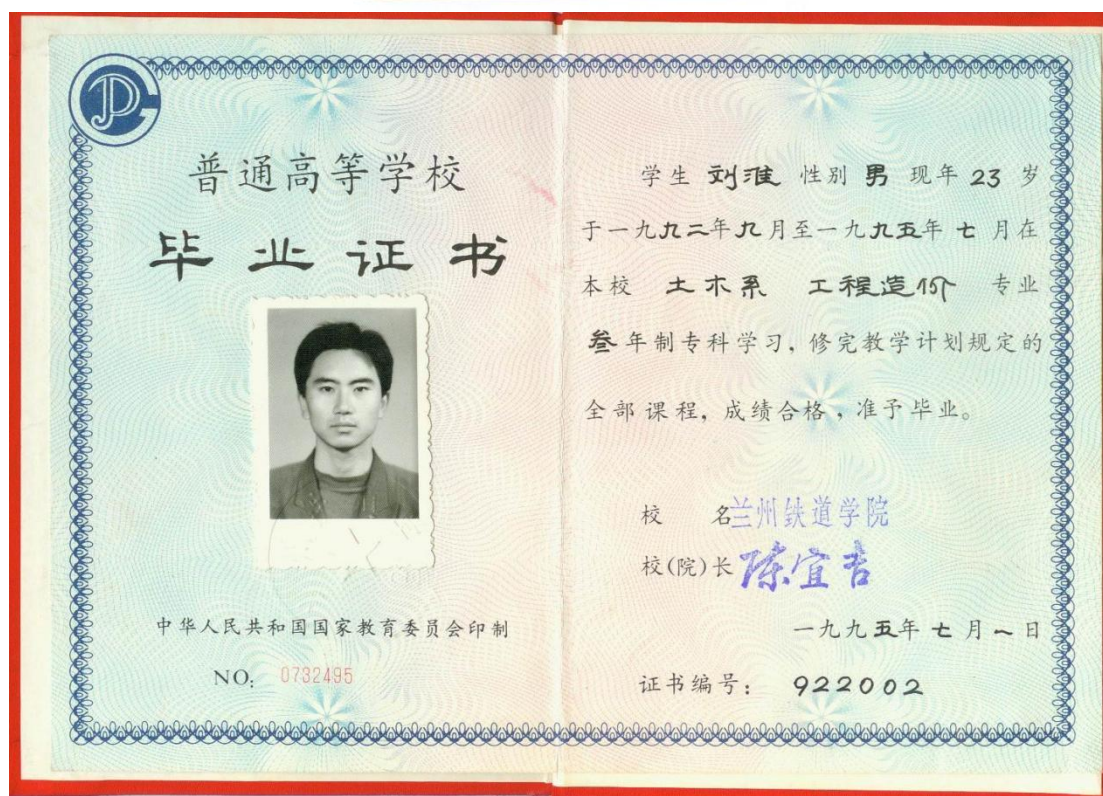 普通高等学校
毕业证书
中华人民共和国国家教育委员会印制
NO: 0732495
学生 刘淮 性别 男 现年 23 岁
于一九九二年九月至一九九五年七月在
本校 土木系 工程造价 专业
叁年制专科学习,修完教学计划规定的
全部课程,成绩合格,准予毕业。
校 名 兰州铁道学院
校(院)长 陈宜吉
一九九五年七月一日
证书编号: 922002